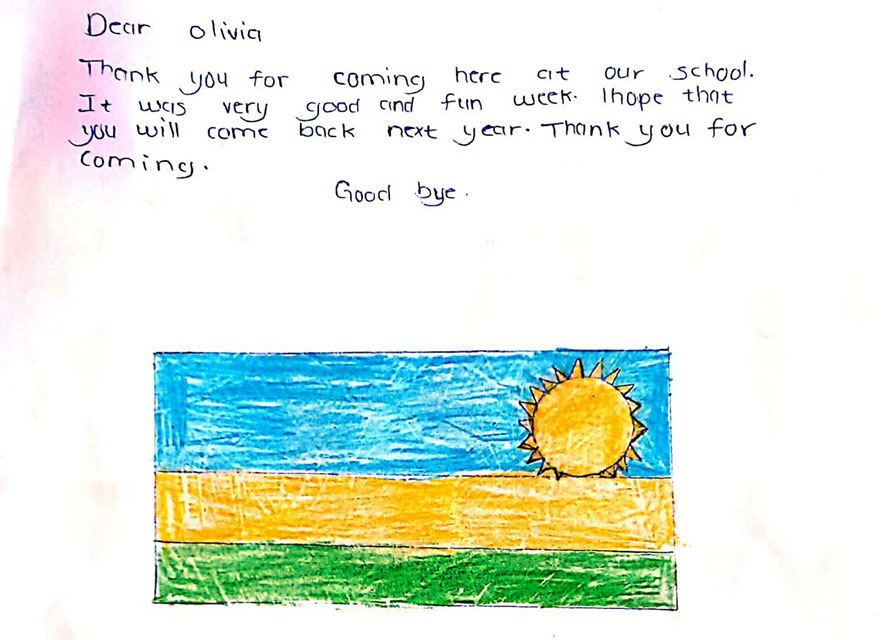 Dear olivia
Thank you for coming here at our school.
It was very good and fun week. Ihope that
you will come back next year. Thank you for
coming.
Good bye.